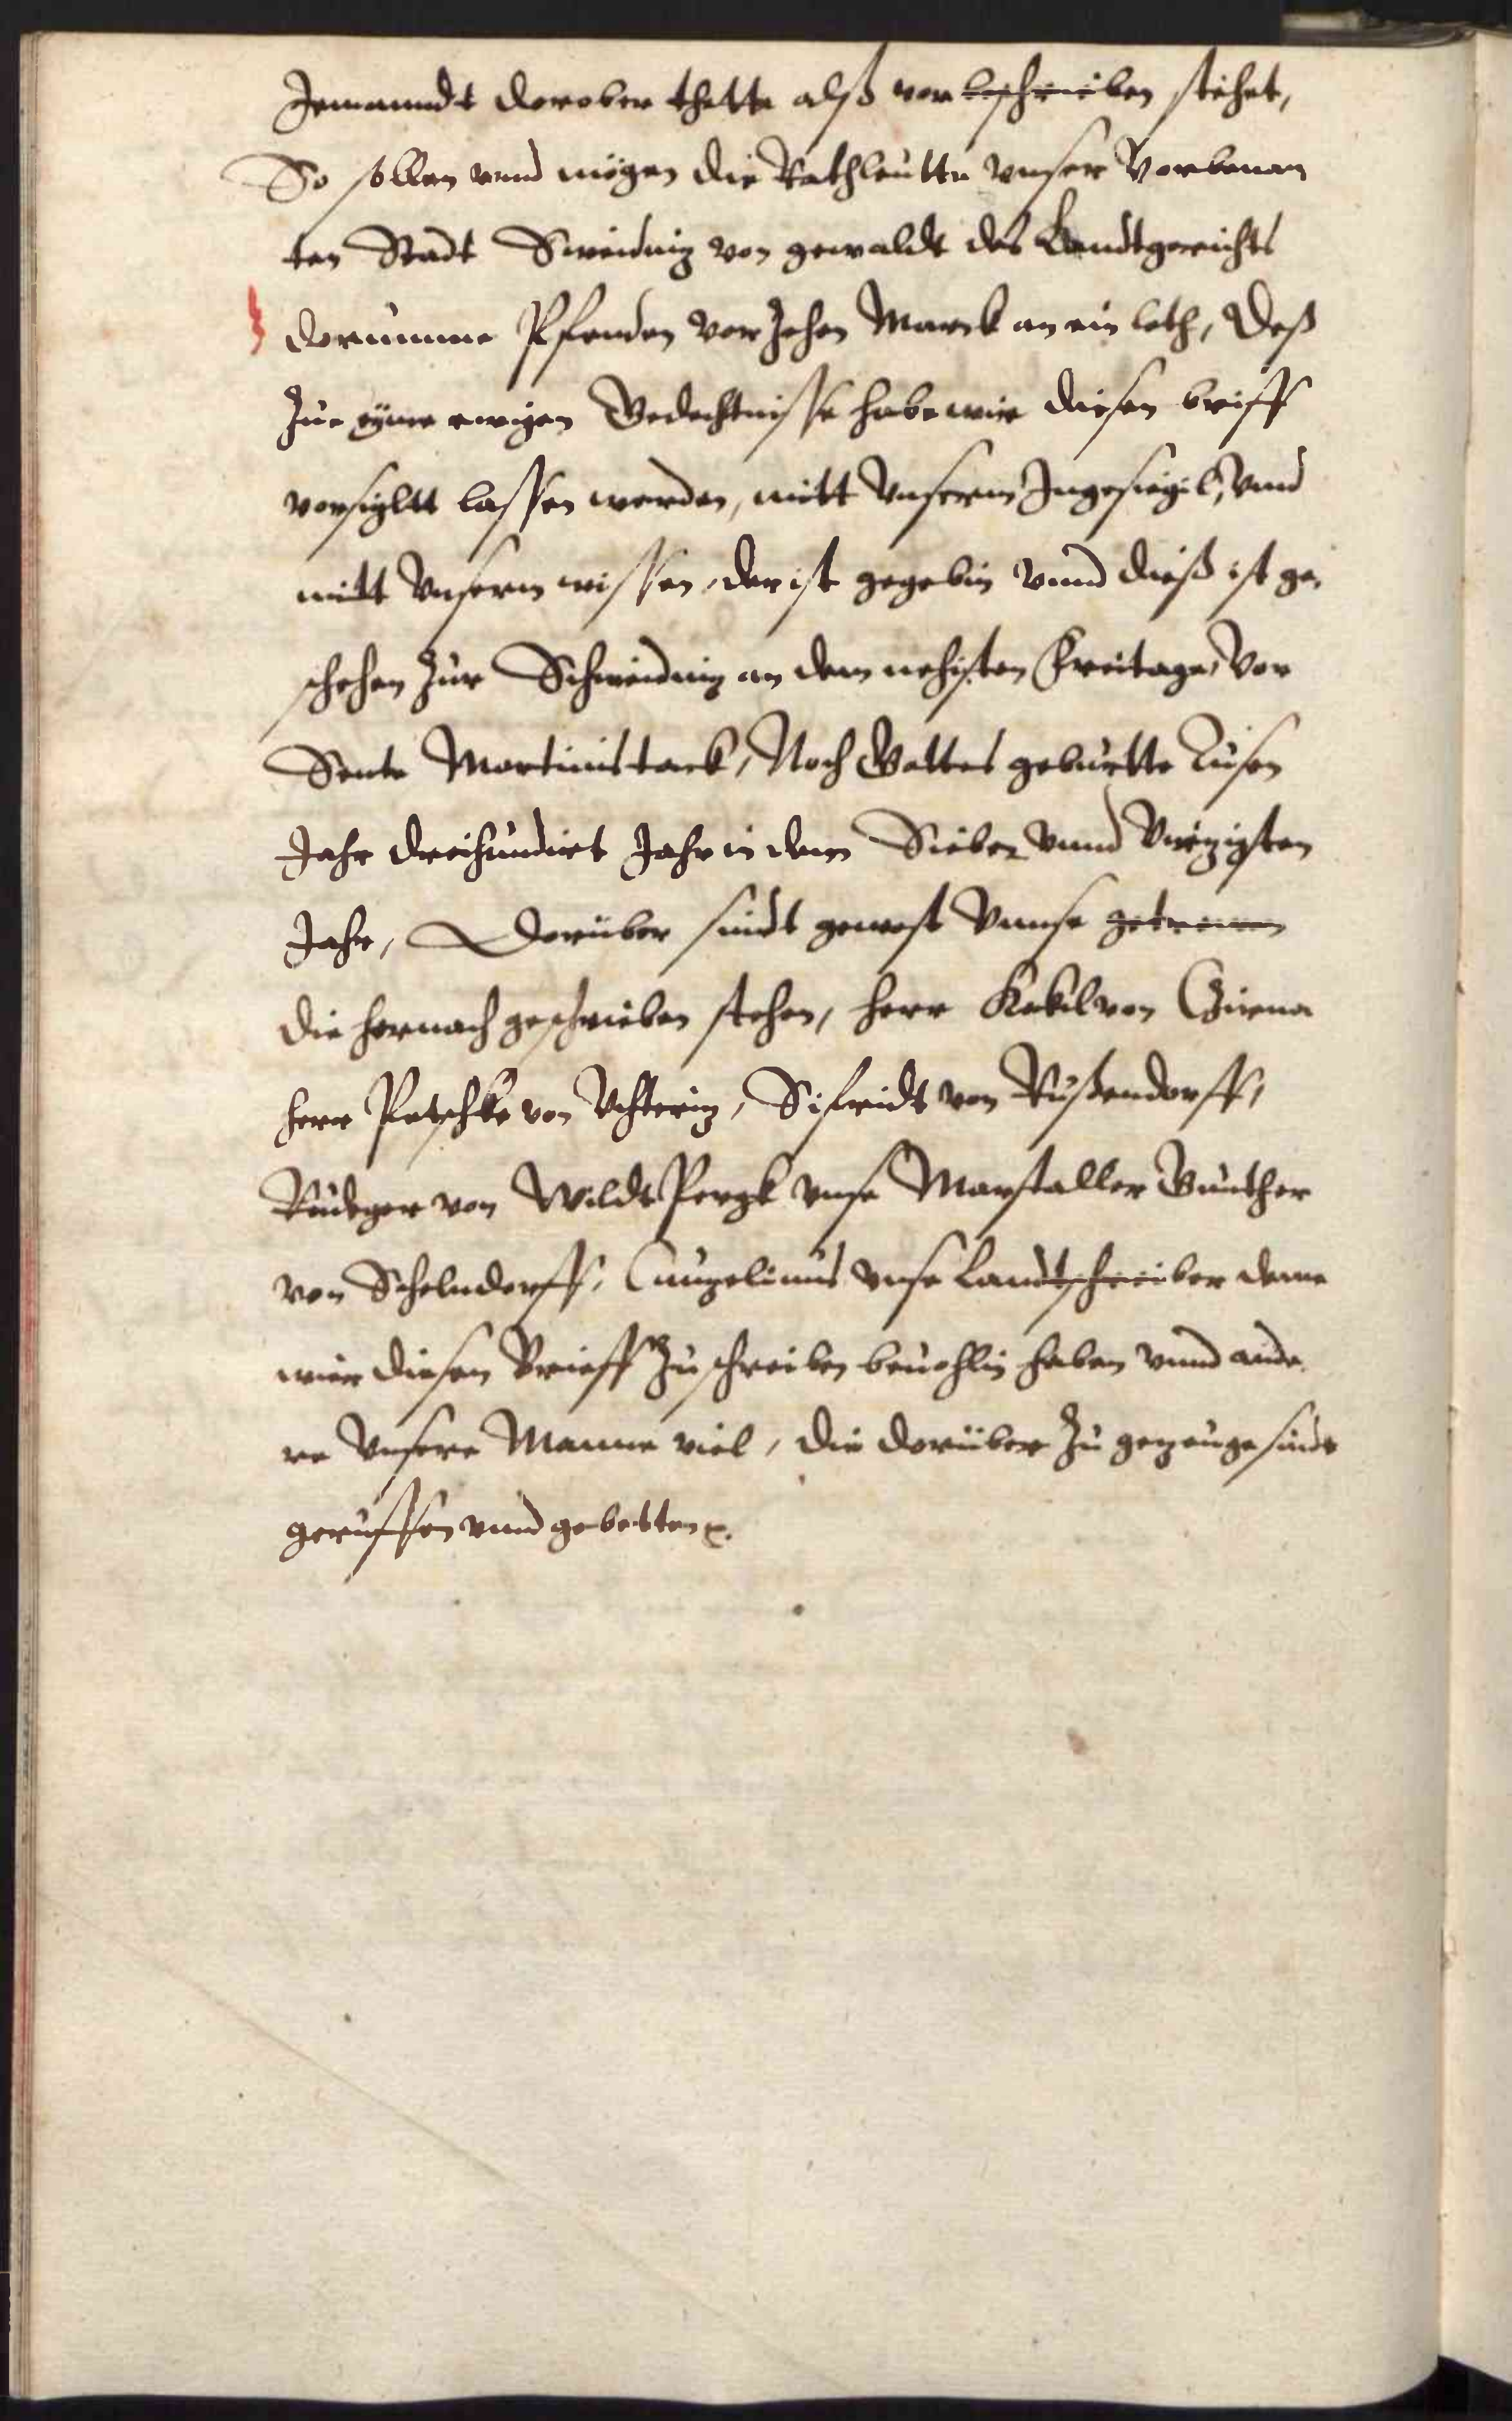 Jemanndt dorober thette alß vor beschrieben stehet,
So sollen vnnd mögen die Rathleutte vnser Vorbenan
ten Stadt Sweidnig von gewaldt des Landtgerichts
dorumme Pfenden vor Zehen Marck an ein loth, Deß
Zue eyner ewigen Gedechtnisse habe wir diesen briff
vorsigltt lassen werden, mitt Vnserem Ingesiegil, Vnnd
mitt Vnserm wissen, der ist gegebin Vnnd dieß ist ge,
schehen Zur Schweidnig an dem nehisten Freitage, Vor
Sente Martinistack, Noch Gottes geburtte Tusen
Jahr dreihundirt Jahr in dem Sieben Vnnd Virzigsten
Jahr, Dorüber sindt gewest Vnnse getrewen
die hernach geschrieben stehen, herr Kekil von Czirna
herr Petschke von Vchteriz, Sifridt von Rußendorff,
Rudeger von Wildt Pergk vnse Marstaller Gunther
von Schelndorff, Cunzelinus vnse Landtschreiber deme
wier diesen Brieff Zu schreiben beuohlin haben vnnd ande,
re Vnsere Manne viel, die dorüber Zu gezeuge sindt
geruffen vnnd gebetten